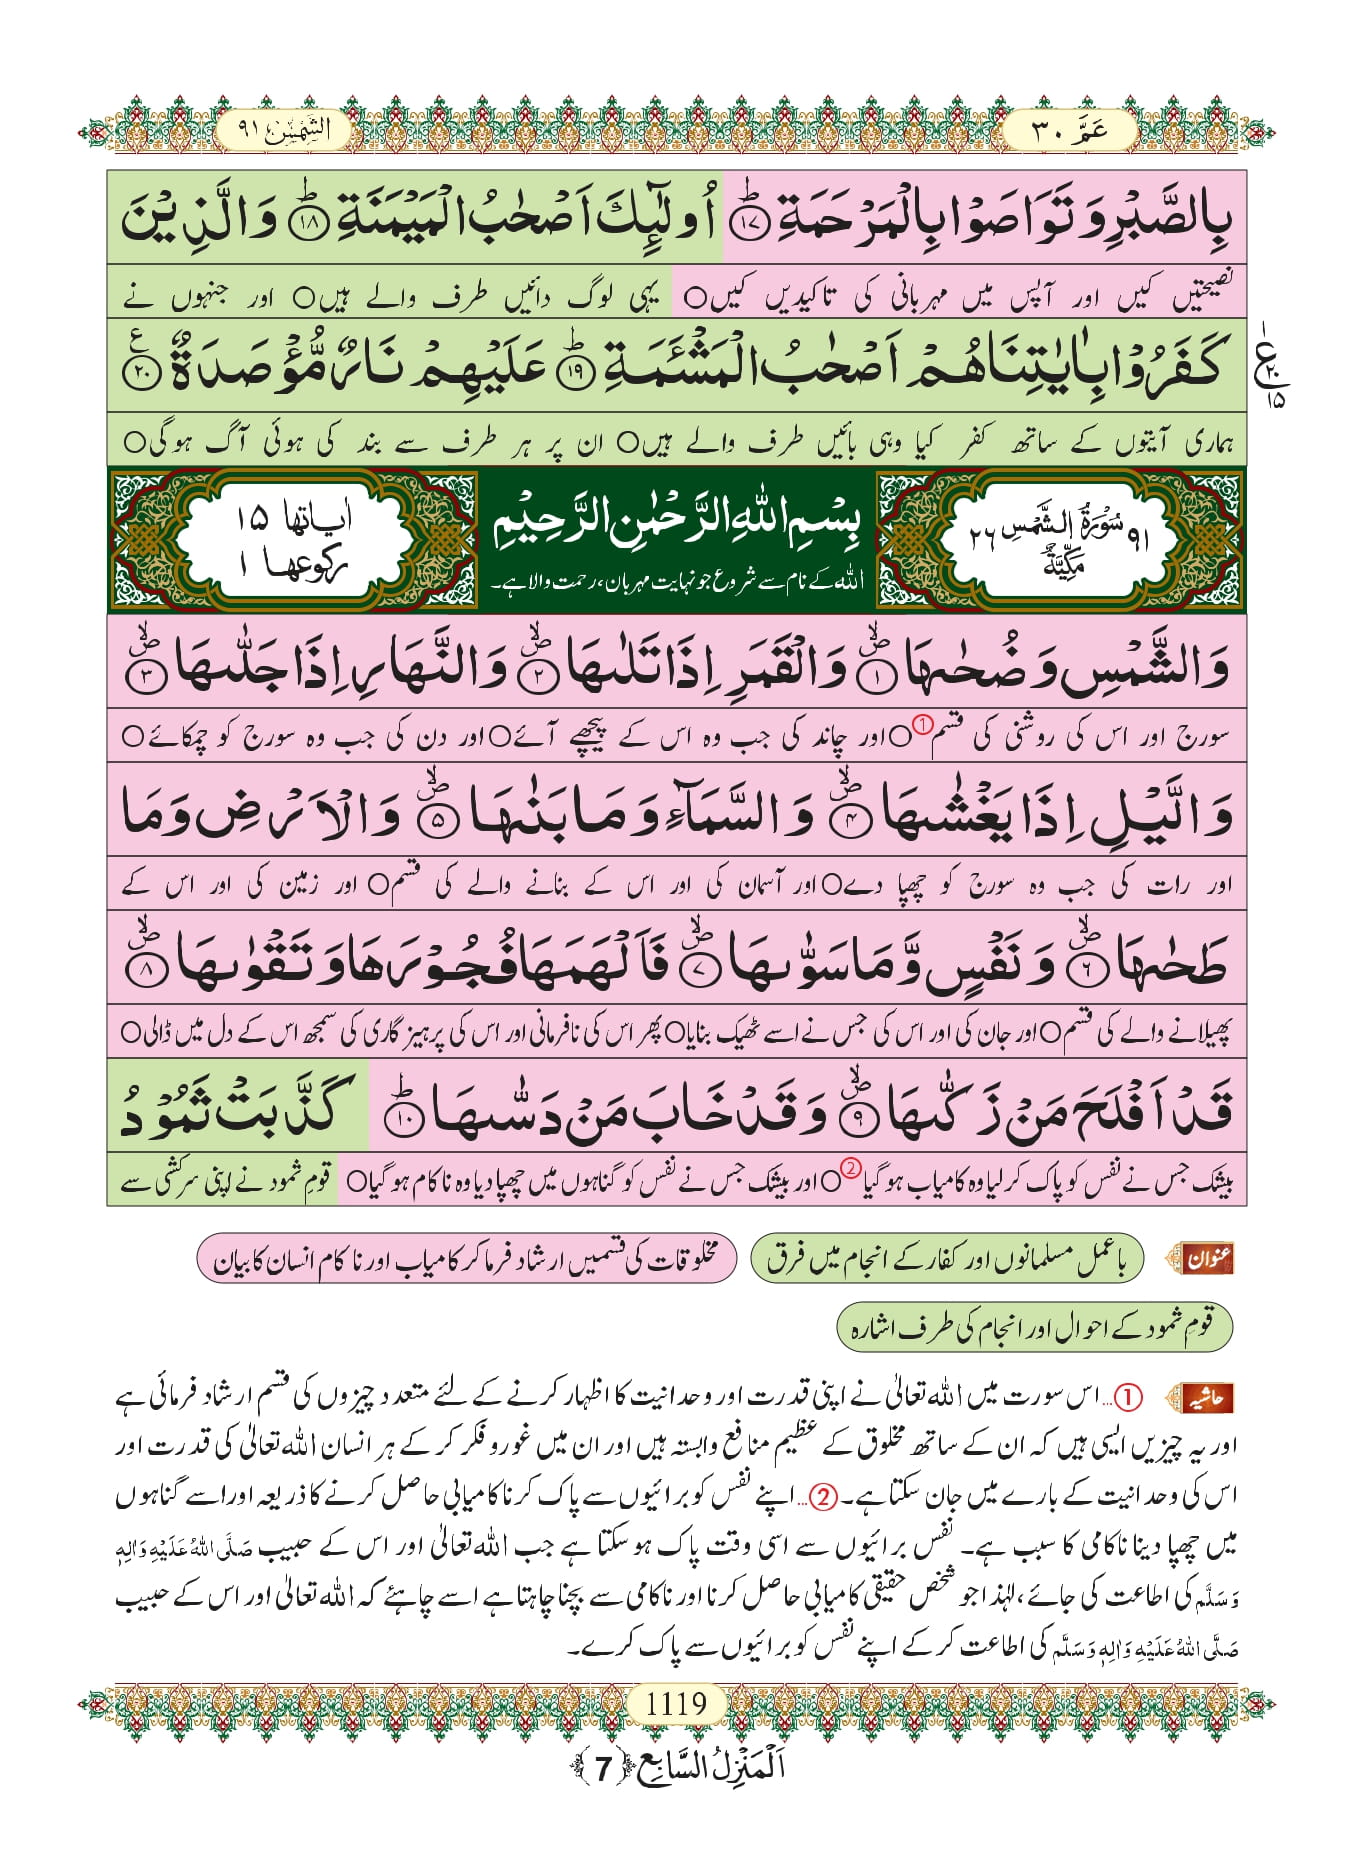 عَمَّ ۳۰
الشَّمْسِ ۹۱
بِالصَّبْرِ وَ تَوَاصَوْا بِالْمَرْحَمَةِ ﴿۱۷﴾ؕ اُولٰٓىِٕكَ اَصْحٰبُ الْمَیْمَنَةِ ﴿۱۸﴾ؕ وَ الَّذِیْنَ
نصیحتیں کیں اور آپس میں مہربانی کی تاکیدیں کیں○ یہی لوگ دائیں طرف والے ہیں○ اور جنہوں نے
كَفَرُوْا بِاٰیٰتِنَا هُمْ اَصْحٰبُ الْمَشْـَٔمَةِ ﴿۱۹﴾ؕ عَلَیْهِمْ نَارٌ مُّؤْصَدَةٌ ﴿۲۰﴾ع
ہماری آیتوں کے ساتھ کفر کیا وہی بائیں طرف والے ہیں○ ان پر ہر طرف سے بند کی ہوئی آگ ہوگی○
۱
ع ۲۰
۱۵
۹۱ سُوْرَةُ الشَّمْسِ ۲۶
مَكِّیَّةٌ
بِسْمِ اللّٰهِ الرَّحْمٰنِ الرَّحِیْمِ
اللہ کے نام سے شروع جو نہایت مہربان، رحمت والا ہے۔
اٰیاتها ۱۵
رکوعها ۱
وَ الشَّمْسِ وَ ضُحٰىهَا ﴿۱﴾ۙ وَ الْقَمَرِ اِذَا تَلٰىهَا ﴿۲﴾ۙ وَ النَّهَارِ اِذَا جَلّٰىهَا ﴿۳﴾ۙ
سورج اور اس کی روشنی کی قسم①○ اور چاند کی جب وہ اس کے پیچھے آئے○ اور دن کی جب وہ سورج کو چمکائے○
وَ الَّیْلِ اِذَا یَغْشٰىهَا ﴿۴﴾ۙ وَ السَّمَآءِ وَ مَا بَنٰىهَا ﴿۵﴾ۙ وَ الْاَرْضِ وَ مَا
اور رات کی جب وہ سورج کو چھپا دے○ اور آسمان کی اور اس کے بنانے والے کی قسم○ اور زمین کی اور اس کے
طَحٰىهَا ﴿۶﴾ۙ وَ نَفْسٍ وَّ مَا سَوّٰىهَا ﴿۷﴾ۙ فَاَلْهَمَهَا فُجُوْرَهَا وَ تَقْوٰىهَا ﴿۸﴾ۙ
پھیلانے والے کی قسم○ اور جان کی اور اس کی جس نے اسے ٹھیک بنایا○ پھر اس کی نافرمانی اور اس کی پرہیز گاری کی سمجھ اس کے دل میں ڈالی○
قَدْ اَفْلَحَ مَنْ زَكّٰىهَا ﴿۹﴾ۙ وَ قَدْ خَابَ مَنْ دَسّٰىهَا ﴿۱۰﴾ؕ كَذَّبَتْ ثَمُوْدُ
بیشک جس نے نفس کو پاک کرلیا وہ کامیاب ہو گیا②○ اور بیشک جس نے نفس کو گناہوں میں چھپا دیا وہ ناکام ہو گیا○ قومِ ثمود نے اپنی سرکشی سے
عنوان باعمل مسلمانوں اور کفار کے انجام میں فرق مخلوقات کی قسمیں ارشاد فرما کر کامیاب اور ناکام انسان کا بیان
قومِ ثمود کے احوال اور انجام کی طرف اشارہ
حاشیہ ①...اس سورت میں اللہ تعالیٰ نے اپنی قدرت اور وحدانیت کا اظہار کرنے کے لئے متعدد چیزوں کی قسم ارشاد فرمائی ہے
اور یہ چیزیں ایسی ہیں کہ ان کے ساتھ مخلوق کے عظیم منافع وابستہ ہیں اور ان میں غور و فکر کر کے ہر انسان اللہ تعالیٰ کی قدرت اور
اس کی وحدانیت کے بارے میں جان سکتا ہے۔ ②...اپنے نفس کو برائیوں سے پاک کرنا کامیابی حاصل کرنے کا ذریعہ اور اسے گناہوں
میں چھپا دینا ناکامی کا سبب ہے۔ نفس برائیوں سے اسی وقت پاک ہو سکتا ہے جب اللہ تعالیٰ اور اس کے حبیب صَلَّی اللہُ عَلَیْہِ وَاٰلِہٖ
وَسَلَّم کی اطاعت کی جائے، لہٰذا جو شخص حقیقی کامیابی حاصل کرنا اور ناکامی سے بچنا چاہتا ہے اسے چاہئے کہ اللہ تعالیٰ اور اس کے حبیب
صَلَّی اللہُ عَلَیْہِ وَاٰلِہٖ وَسَلَّم کی اطاعت کر کے اپنے نفس کو برائیوں سے پاک کرے۔
1119
اَلْمَنْزِلُ السَّابِع ﴿7﴾